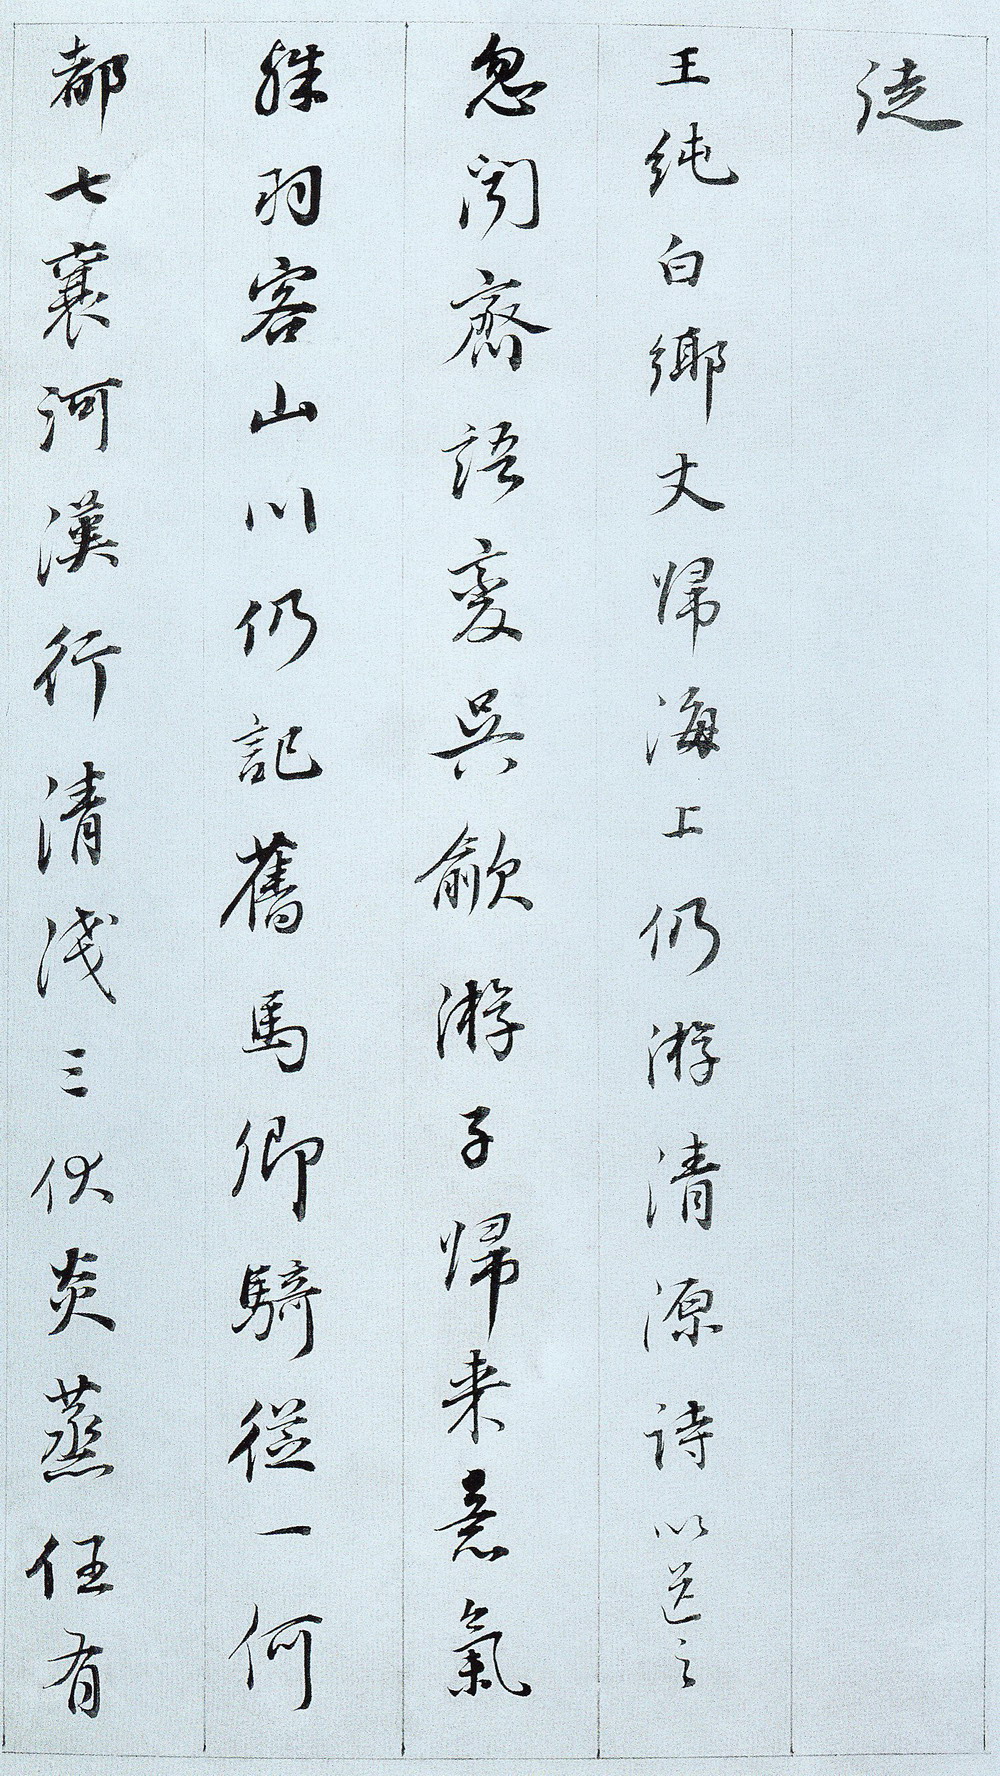 徒
王纯白鄉丈帰海上仍游清源诗以送之
忽闻齋語变吳歈游子帰来意氣
殊羽客山川仍記舊馬卿騎從一何
都七襄河漢行清浅三伏炎蒸任有